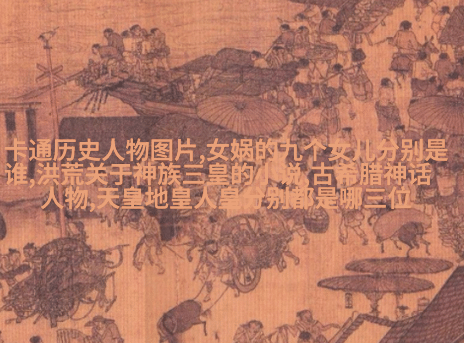 卡通历史人物图片,女娲的九个女儿分别是
谁,洪荒关于神族三皇的小说,古希腊神话
人物,天皇地皇人皇分别都是哪三位